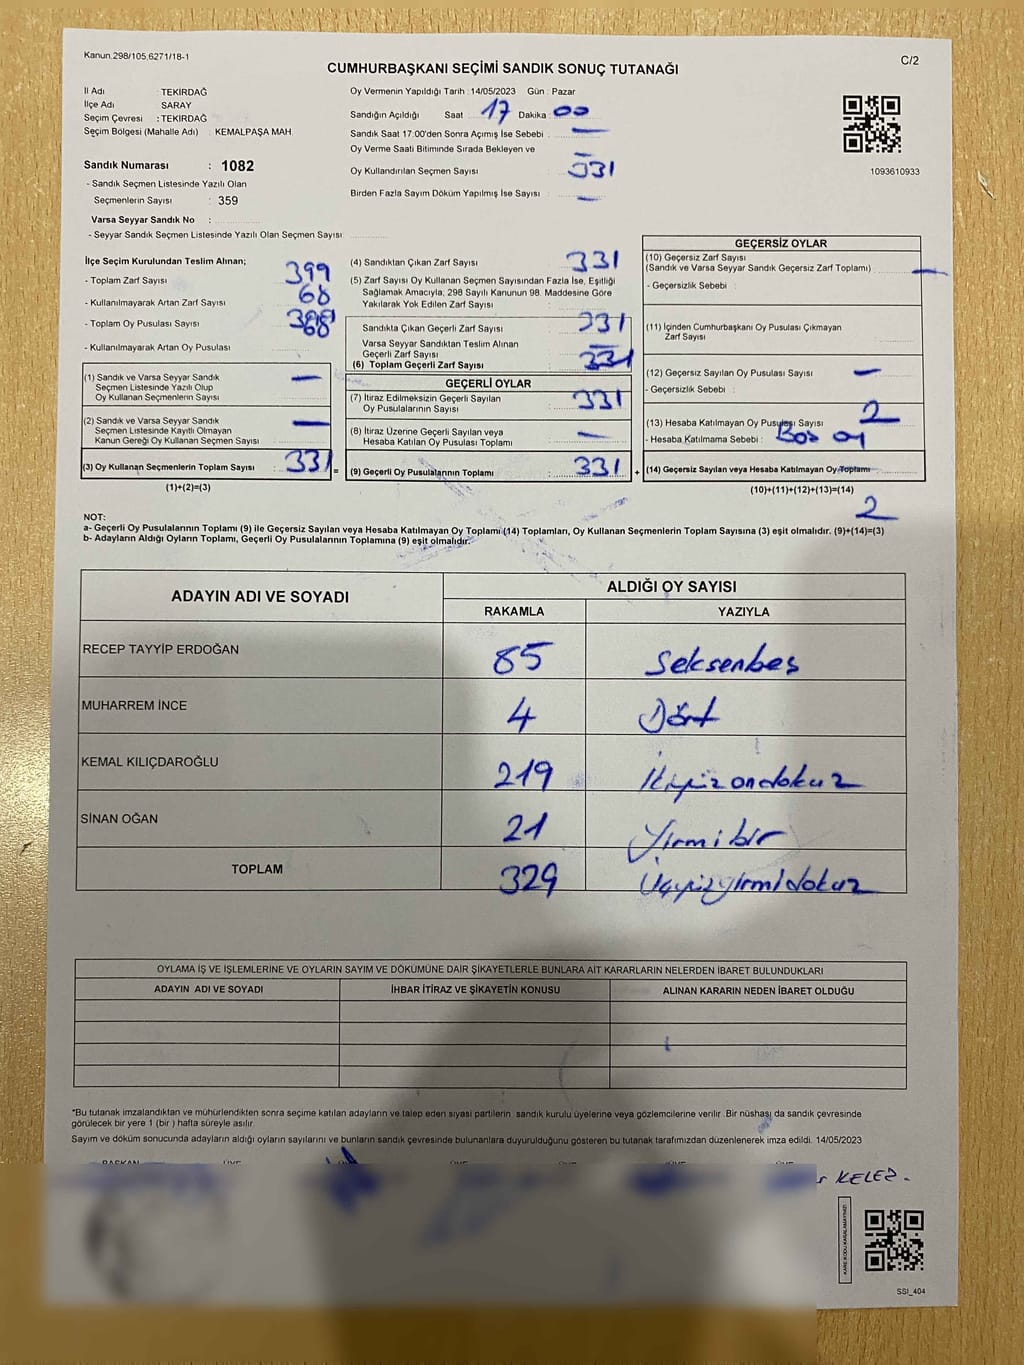 Kanun.298/105,6271/18-1
C/2
CUMHURBAŞKANI SEÇİMİ SANDIK SONUÇ TUTANAĞI
İl Adı : TEKİRDAĞ
İlçe Adı SARAY
Seçim Çevresi : TEKİRDAĞ
Seçim Bölgesi (Mahalle Adı) : KEMALPAŞA MAH.
Sandık Numarası : 1082
- Sandık Seçmen Listesinde Yazılı Olan
Seçmenlerin Sayısı : 359
Varsa Seyyar Sandık No :
- Seyyar Sandık Seçmen Listesinde Yazılı Olan Seçmen Sayısı:
Oy Vermenin Yapıldığı Tarih : 14/05/2023 Gün : Pazar
Sandığın Açıldığı Saat 17 Dakika 00
Sandık Saat 17:00'den Sonra Açımış İse Sebebi : —
Oy Verme Saati Bitiminde Sırada Bekleyen ve —
Oy Kullandırılan Seçmen Sayısı 331
Birden Fazla Sayım Döküm Yapılmış İse Sayısı : —
1093610933
İlçe Seçim Kurulundan Teslim Alınan;
- Toplam Zarf Sayısı 399
- Kullanılmayarak Artan Zarf Sayısı 68
- Toplam Oy Pusulası Sayısı
- Kullanılmayarak Artan Oy Pusulası
(1) Sandık ve Varsa Seyyar Sandık —
Seçmen Listesinde Yazılı Olup
Oy Kullanan Seçmenlerin Sayısı
(2) Sandık ve Varsa Seyyar Sandık —
Seçmen Listesinde Kayıtlı Olmayan
Kanun Gereği Oy Kullanan Seçmen Sayısı
(3) Oy Kullanan Seçmenlerin Toplam Sayısı : 331 =
(1)+(2)=(3)
(4) Sandıktan Çıkan Zarf Sayısı : 331
(5) Zarf Sayısı Oy Kullanan Seçmen Sayısından Fazla İse, Eşitliği
Sağlamak Amacıyla, 298 Sayılı Kanunun 98. Maddesine Göre
Yakılarak Yok Edilen Zarf Sayısı
Sandıkta Çıkan Geçerli Zarf Sayısı 331
Varsa Seyyar Sandıktan Teslim Alınan —
Geçerli Zarf Sayısı
(6) Toplam Geçerli Zarf Sayısı 331
GEÇERLİ OYLAR
(7) İtiraz Edilmeksizin Geçerli Sayılan 331
Oy Pusulalarının Sayısı
(8) İtiraz Üzerine Geçerli Sayılan veya —
Hesaba Katılan Oy Pusulası Toplamı
(9) Geçerli Oy Pusulalarının Toplamı 331 +
GEÇERSİZ OYLAR
(10) Geçersiz Zarf Sayısı
(Sandık ve Varsa Seyyar Sandık Geçersiz Zarf Toplamı) : —
- Geçersizlik Sebebi :
(11) İçinden Cumhurbaşkanı Oy Pusulası Çıkmayan
Zarf Sayısı
(12) Geçersiz Sayılan Oy Pusulası Sayısı : —
- Geçersizlik Sebebi :
(13) Hesaba Katılmayan Oy Pusulası Sayısı 2
- Hesaba Katılmama Sebebi : Boş oy
(14) Geçersiz Sayılan veya Hesaba Katılmayan Oy Toplamı
(10)+(11)+(12)+(13)=(14)
2
NOT:
a- Geçerli Oy Pusulalarının Toplamı (9) ile Geçersiz Sayılan veya Hesaba Katılmayan Oy Toplamı (14) Toplamları, Oy Kullanan Seçmenlerin Toplam Sayısına (3) eşit olmalıdır. (9)+(14)=(3)
b- Adayların Aldığı Oyların Toplamı, Geçerli Oy Pusulalarının Toplamına (9) eşit olmalıdır.
ADAYIN ADI VE SOYADI ALDIĞI OY SAYISI
RAKAMLA YAZIYLA
RECEP TAYYİP ERDOĞAN 85 Seksenbeş
MUHARREM İNCE 4 Dört
KEMAL KILIÇDAROĞLU 219 İkiyüz ondokuz
SİNAN OĞAN 21 Yirmibir
TOPLAM 329 Üçyüzyirmidokuz
OYLAMA İŞ VE İŞLEMLERİNE VE OYLARIN SAYIM VE DÖKÜMÜNE DAİR ŞİKAYETLERLE BUNLARA AİT KARARLARIN NELERDEN İBARET BULUNDUKLARI
ADAYIN ADI VE SOYADI İHBAR İTİRAZ VE ŞİKAYETİN KONUSU ALINAN KARARIN NEDEN İBARET OLDUĞU
*Bu tutanak imzalandıktan ve mühürlendikten sonra seçime katılan adayların ve talep eden siyasi partilerin sandık kurulu üyelerine veya gözlemcilerine verilir. Bir nüshası da sandık çevresinde
görülecek bir yere 1 (bir ) hafta süreyle asılır.
Sayım ve döküm sonucunda adayların aldığı oyların sayılarını ve bunların sandık çevresinde bulunanlara duyurulduğunu gösteren bu tutanak tarafımızdan düzenlenerek imza edildi. 14/05/2023
BAŞKAN ÜYE ÜYE ÜYE ÜYE ÜYE
KELEŞ.
KARE KODU KARALAMAYINIZ!
SSİ_404